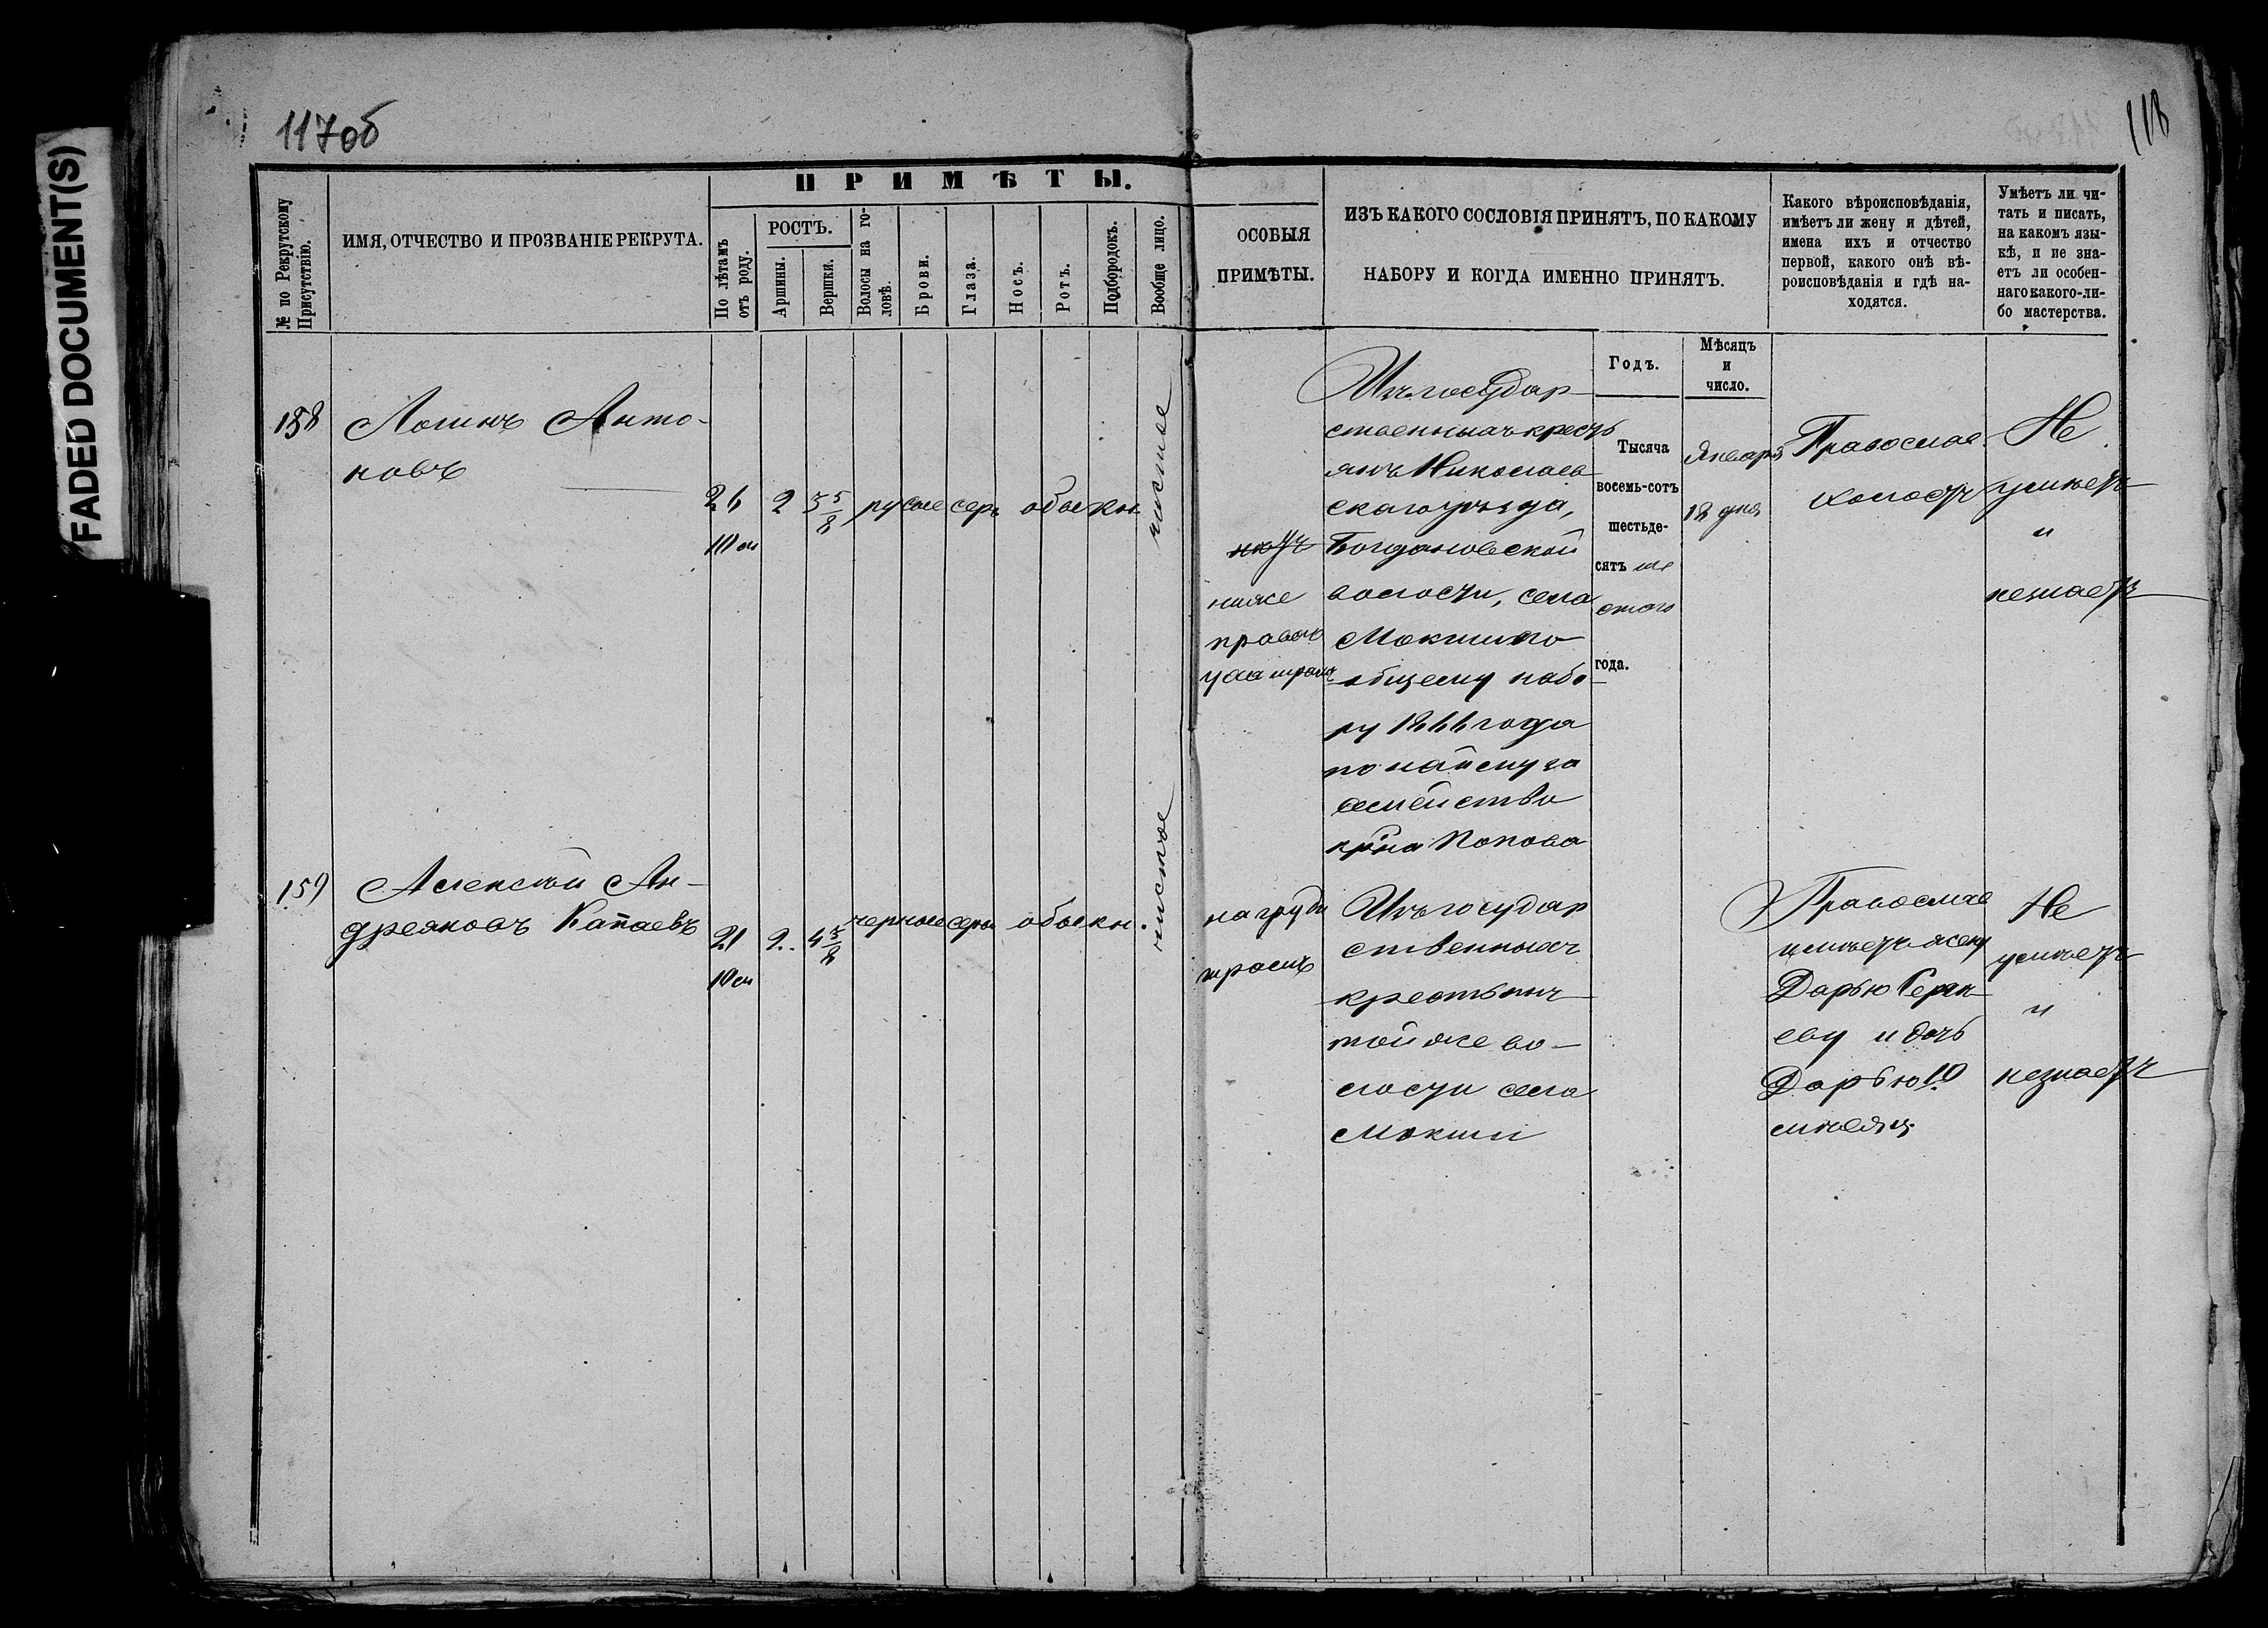 FADED DOCUMENT(S)
117об
118
ПРИМѢТЫ.
№ по Рекрутскому
Присутствію.
ИМЯ, ОТЧЕСТВО И ПРОЗВАНІЕ РЕКРУТА.
По лѣтамъ
отъ роду.
РОСТЪ.
Аршины.
Вершки.
Волосы на го-
ловѣ.
Брови.
Глаза.
Носъ.
Ротъ.
Подбородокъ.
Вообще лицо.
ОСОБЫЯ
ПРИМѢТЫ.
ИЗЪ КАКОГО СОСЛОВІЯ ПРИНЯТЪ, ПО КАКОМУ
НАБОРУ И КОГДА ИМЕННО ПРИНЯТЪ.
Какого вѣроисповѣданія,
имѣетъ ли жену и дѣтей,
имена ихъ и отчество
первой, какого онѣ вѣ-
роисповѣданія и гдѣ на-
ходятся.
Умѣетъ ли чи-
тать и писать,
на какомъ язы-
кѣ, и не зна-
етъ ли особен-
наго какого-ли-
бо мастерства.
Годъ.
Мѣсяцъ
и
число.
158
Логинъ Анто-
новъ
26
10 м
2
3 5/8
русые
серы
обыкн
чистое
ниже
праваго
уса шрамъ
Изъ государ
ственныхъ кресть
янъ Николаев
скаго уѣзда,
Богдановской
волости, села
Мокши по
общему набо
ру 1866 года
по найму за
семейство
кр̃на Попова
Тысяча
восемь-сотъ
шестьде-
сятъ ше
стого
года.
Января
18 дня
Православ.
холостъ
Не
умѣетъ
и
незнаетъ
159
Алексѣй Ан-
дреяновъ Капаевъ
21
10 м
2
4 3/8
черные
серы
обыкн.
чистое
на груди
шрамъ
Изъ государ
ственныхъ
крестьянъ
той же во-
лости села
Мокши
Православ
имѣетъ жену
Дарью Серге-
еву и дочь
Дарью 10
мѣсяц.
Не
умѣетъ
и
незнаетъ